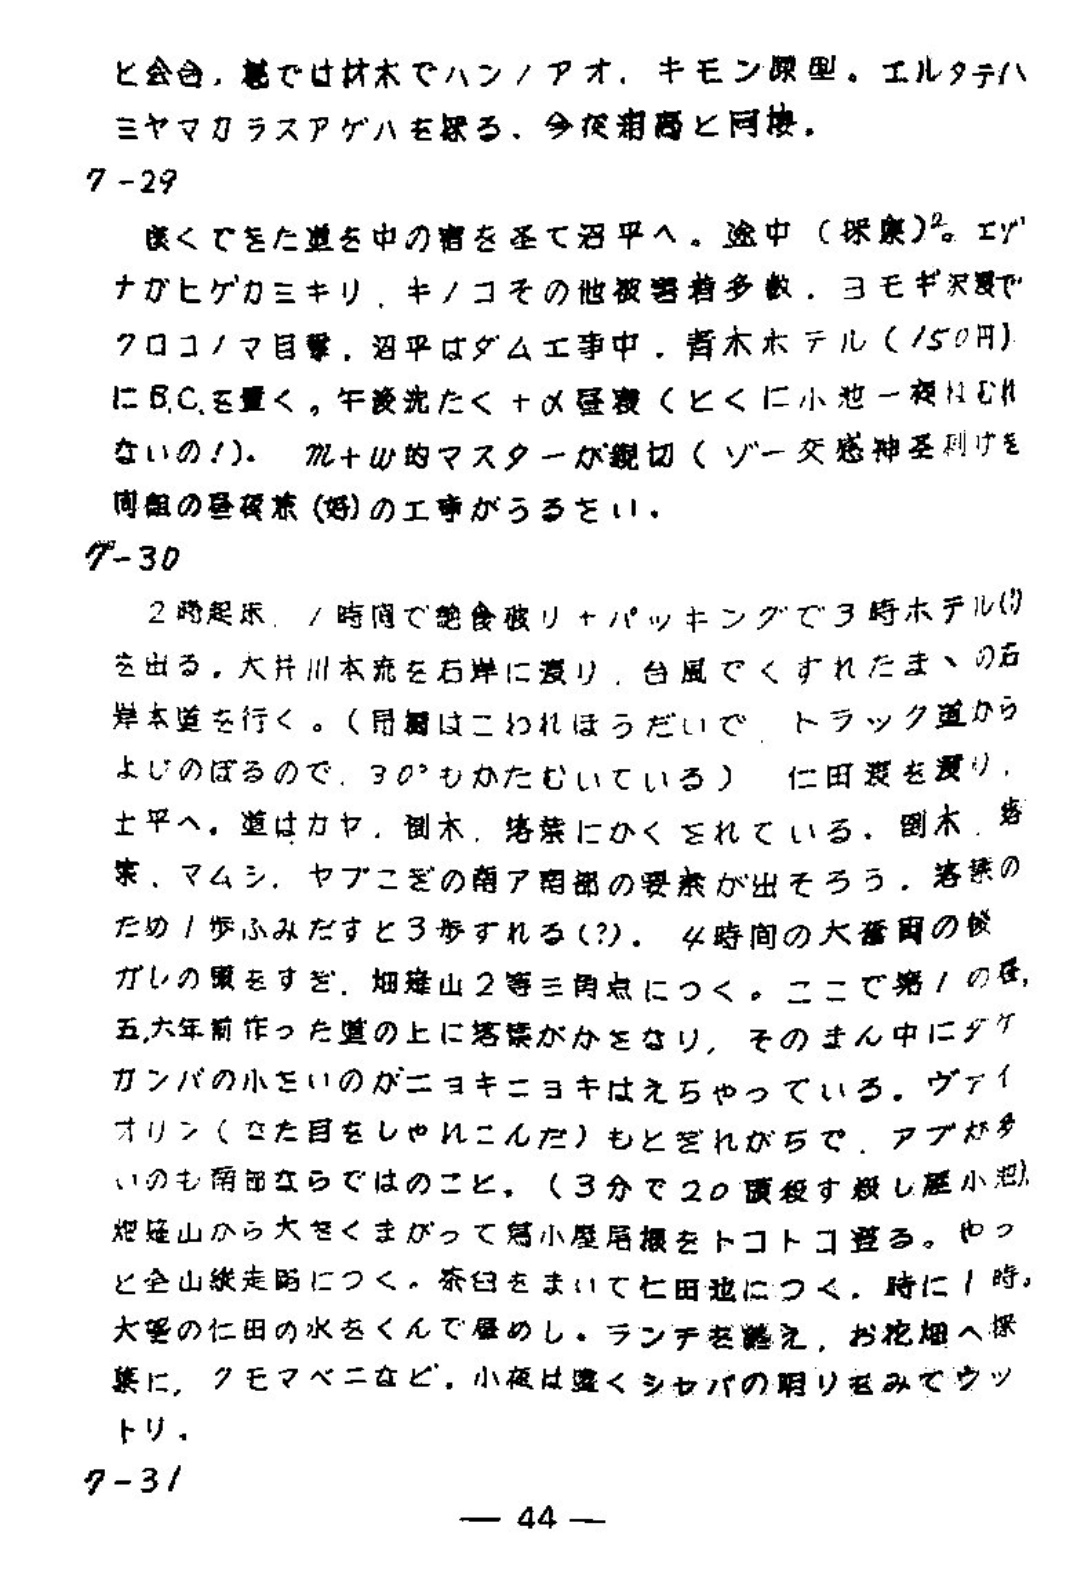 と会合，麓では材木でハンノアオ，キモン原型。エルタテハ
ミヤマカラスアゲハを採る、今夜湘南と同棲．
7-29
良くできた道を中の宿を圣て沼平へ。途中（採集)²。エゾ
ナガヒゲカミキリ，キノコその他被害者多数．ヨモギ沢渡で
クロコノマ目撃．沼平はダム工事中．青木ホテル（150円）
にB.C.を置く。午後洗たく＋α昼寝（とくに小池一夜ねむれ
ないの！)．m+w的マスターが親切（ゾー交感神圣利けを
間組の昼夜旅(好)の工事がうるさい．
7-30
２時起床．１時間で絶食破り＋パッキングで３時ホテル(!)
を出る．大井川本流を右岸に渡り，台風でくずれたまヽの右
岸本道を行く。（吊橋はこわれほうだいで，トラック道から
よじのぼるので，30°もかたむいている）　仁田渡を渡り，
土平へ．道はカヤ．倒木．落葉にかくされている．倒木，落
葉，マムシ，ヤブこぎの南ア南部の要素が出そろう．落葉の
ため１歩ふみだすと３歩ずれる(?)．4時間の大奮闘の後
ガレの頭をすぎ，畑薙山２等三角点につく。ここで第１の昼，
五,六年前作った道の上に落葉がかさなり，そのまん中にダケ
ガンバの小さいのがニョキニョキはえちゃっている．ヴァイ
オリン（なた目をしゃれこんだ）もとぎれがちで，アブが多
いのも南部ならではのこと．（３分で20頭殺す殺し屋小池)，
畑薙山から大きくまがって鳶小屋尾根をトコトコ登る。やっ
と全山縦走路につく．茶臼をまいて仁田池につく．時に１時。
大望の仁田の水をくんで昼めし．ランチを終え，お花畑へ採
集に，クモマベニなど．小夜は遠くシャバの明りをみてウッ
トリ．
7-31
— 44 —